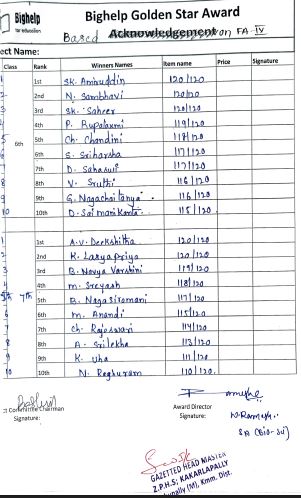 Bighelp
for education
Bighelp Golden Star Award
Based Acknowledgement on FA-IV
ect Name:
Class Rank Winners Names Item name Price Signature
1 1st SK. Aminuddin 120/120
2 2nd N. Sambhavi 120/120
3 3rd SK. Saheer 120/120
4 4th P. Rupalaxmi 119/120
5 6th 5th Ch. Chandini 118/120
6 6th S. Sriharsha 117/120
7 7th D. Sahasvi 117/120
8 8th V. Sruthi 116/120
9 9th G. Nagachaitanya 116/120
10 10th D. Sai manikanta 115/120
1 1st A.V. Deekshitha 120/120
2 2nd K. Lasya Priya 120/120
3 3rd B. Navya Varshini 119/120
4 4th M. Sreyash 118/120
7th 5th B. Naga Siromani 117/120
6 6th M. Anandi 115/120
7 7th Ch. Rajeswari 114/120
8 8th A. Srilekha 113/120
9 9th K. Uha 111/120
10 10th N. Reghuram 110/120.
t Committee Chairman
Signature:
Award Director
Signature:
N. Ramesh
SA (Bio-Sci)
GAZETTED HEAD MASTER
Z.P.H.S; KAKARLAPALLY
upally (M), Kmm. Dist.